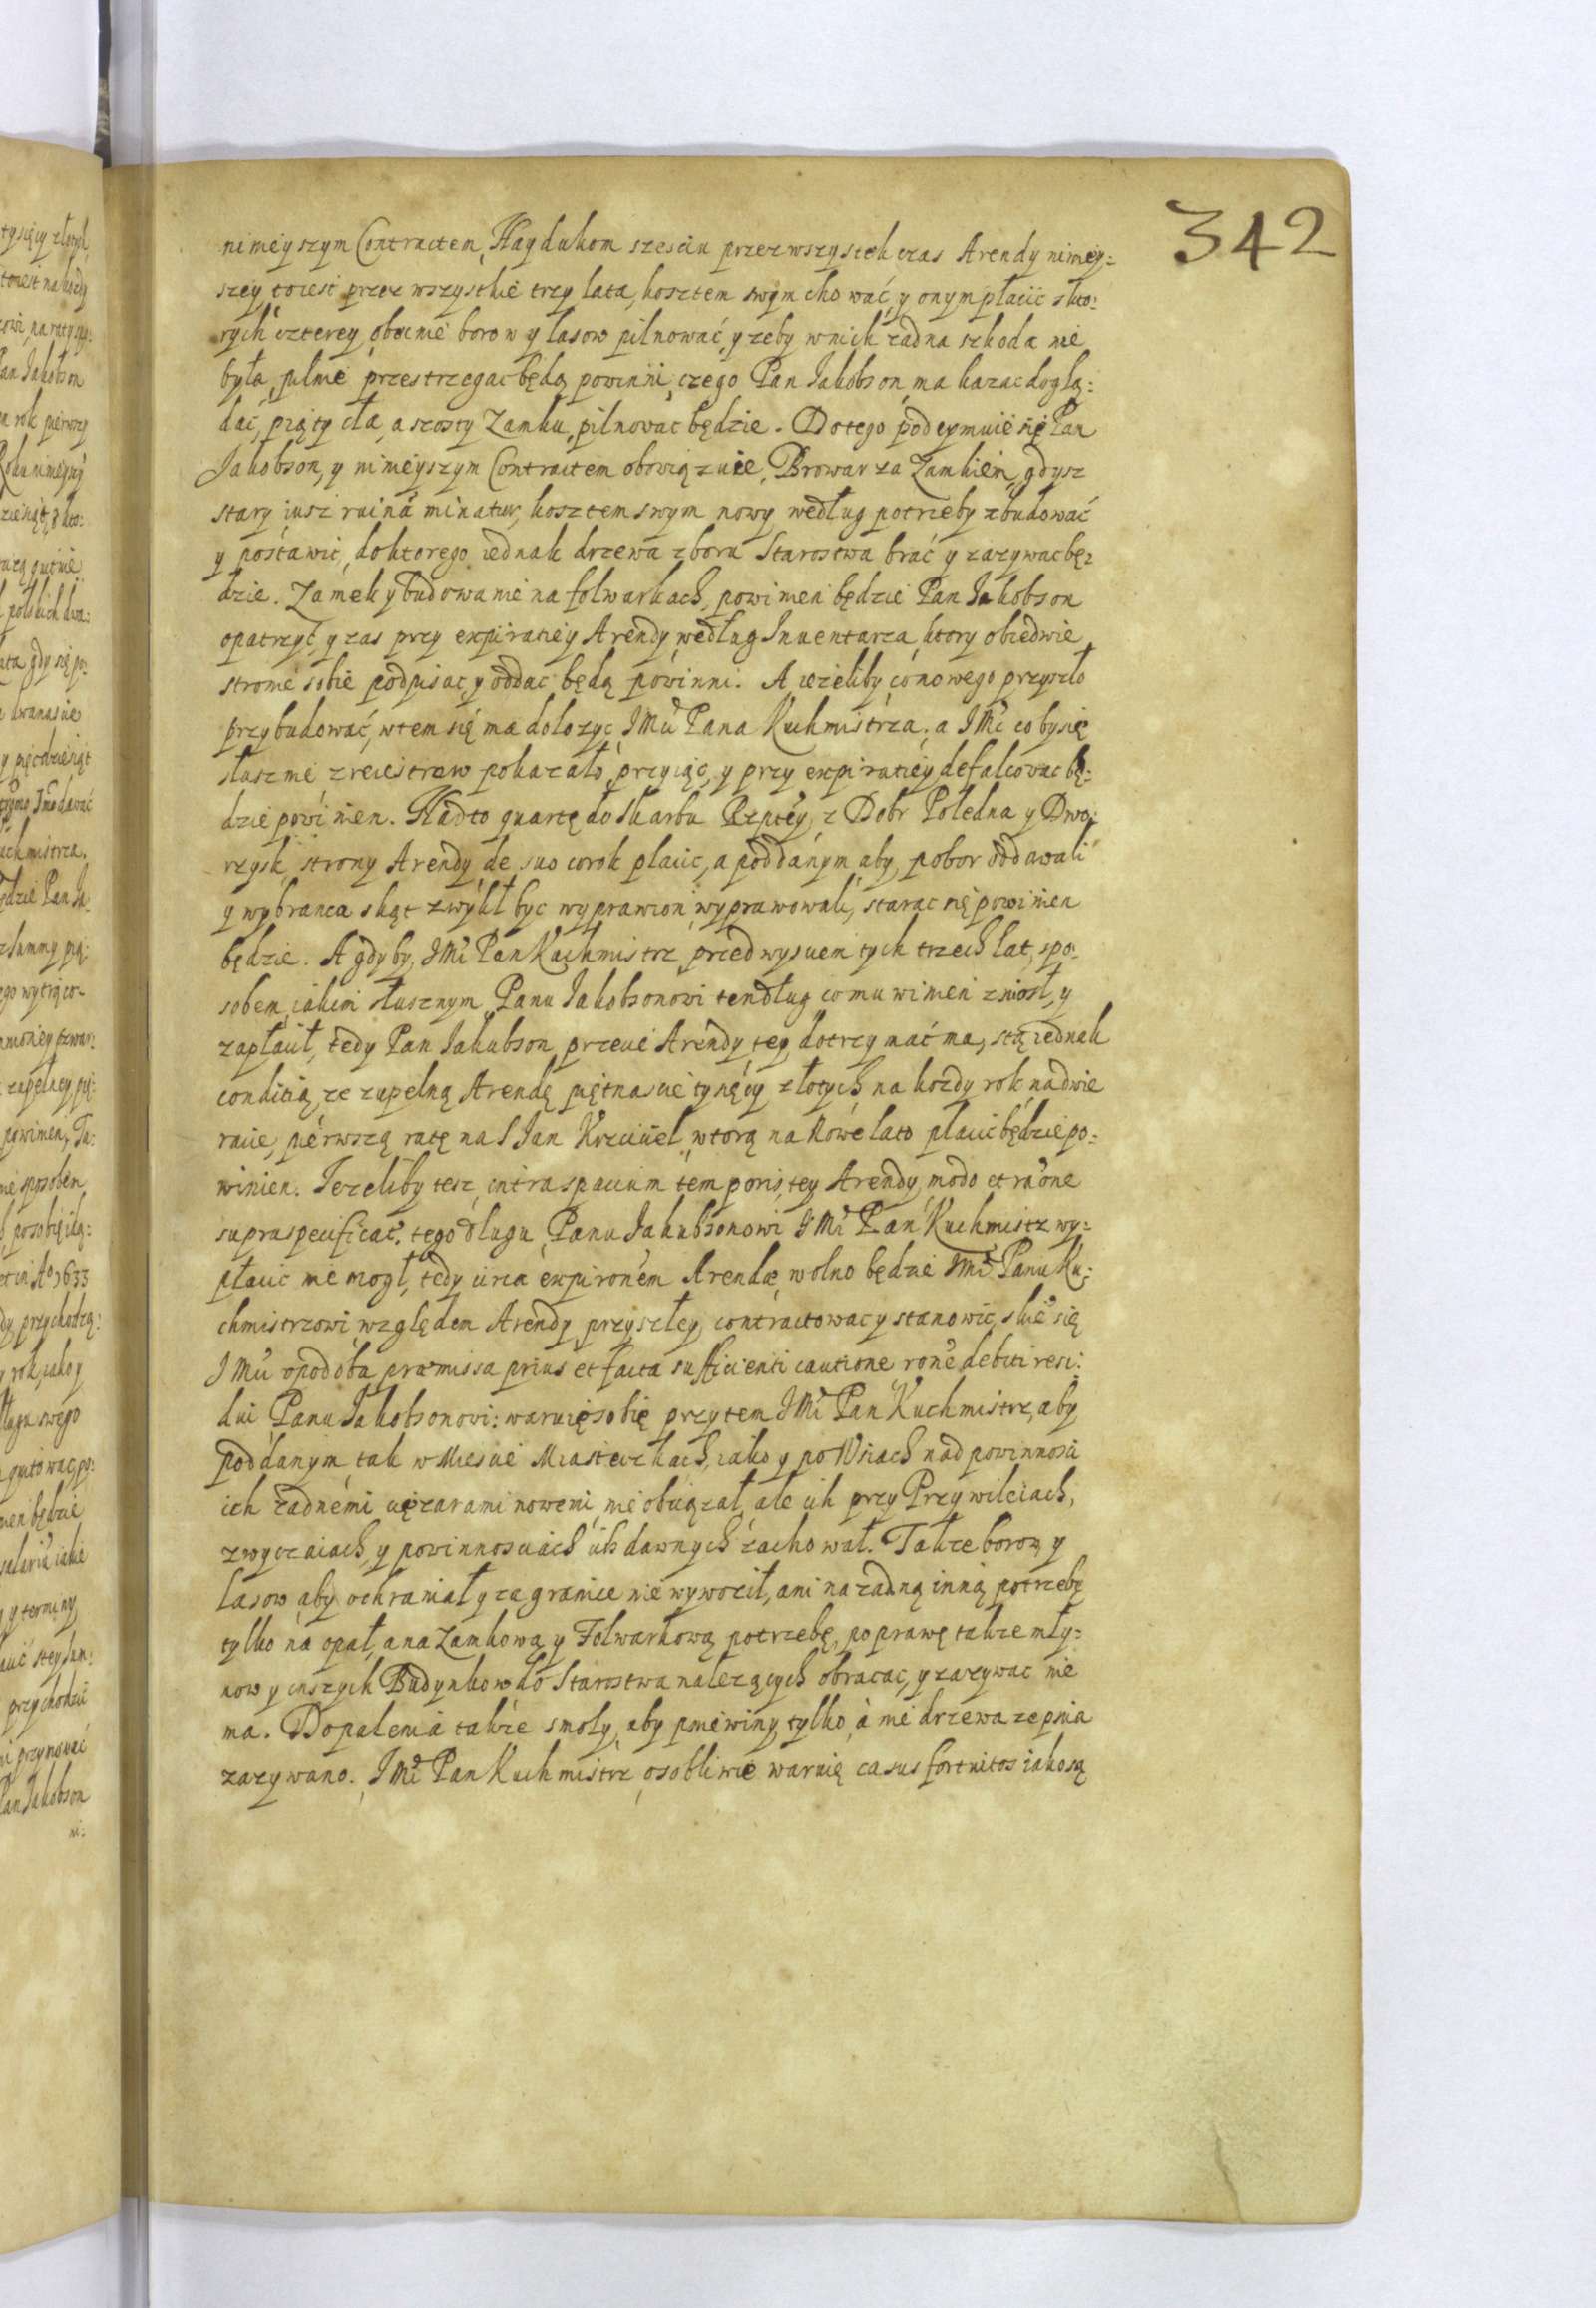 342
nineyszym Contractem, Haydukom szesciu przez wszystek czas Arendy niney:
szey, toiest przez wszystkie trzy lata, kosztem swym chować, y onym płacic z kto:
rych czterey, obecnie borow y lasow pilnować, y zeby w nich zadna szkoda nie
była, pilnie przestrzegac będą powinni, czego Pan Jakobson ma kazac doglą:
dać, piąty cła, a szosty Zamku pilnowac będzie. Do tego podeymuie się Pan
Jakobson, y nineyszym Contractem obowiązuie, Browar za Zamkiem, gdysz
stary iusz ruinã minatur, kosztem swym nowy według potrzeby zbudować
y postawic, do ktorego iednak drzewa z boru Starostwa brać y zazywac bę:
dzie. Zamek y budowanie na folwarkach, powinien będzie Pan Jakobson
opatrzyć, y zas przy expiratiey Arendy według Inuentarza, ktory obiedwie
stronie sobie podpisac, y oddac będą powinni. A iezeliby co nowego przyszło
przybudować, w tem się ma dolozyc JMci Pana Kuchmistrza, a JMc co by się
słusznie z reiestrow pokazało, przyiąc, y przy expiratiey defalcowac bę:
dzie powinien. Nadto quartę do Skarbu Rzptey, z Dobr Poledna y Dwo:
rzysk, strony Arendy de suo corok placic, a poddanym aby pobor oddawali
y wybranca skąt zwykł byc wyprawion, wyprawowali, starac się powinien
będzie. A gdyby, JMc Pan Kuchmistrz przed wysciem tych trzech lat, spo:
sobem iakim słusznym Panu Jakobsonowi ten dług co mu winien zniosł, y
zapłacił, tedy Pan Jakubson przecie Arendy tey dotrzymać ma, s tą iednak
conditią, ze zupełną Arendę piętnascie tysięcy złotych, na kozdy rok, na dwie
racie, pierwszą ratę na S Jan Krzciciel, wtorą na Nowe lato płacic będzie po:
winien. Jezeliby tesz intra spacium temporis, tey Arendy, modo et raõne
supra specificat. tego długu Panu Jakubsonowi JMc Pan Kuchmistrz wy:
płacic nie mogł, tedy circa expironem Arendæ, wolno będzie JMc Panu Ku:
chmistrzowi, względem Arendy przyszłey, contractowac y stanowic, s kiem się
JMci spodoba præmissa prius et facta sufficienti cautione, rone debiti resi:
dui Panu Jakobsonowi: waruię sobie przy tem JMc Pan Kuchmistrz, aby
poddanym, tak w Miescie Miasteczkach, iako y po Wsiach nad powinnosci
ich zadnemi cięzarami nowemi, nie obciązał, ale ich przy Przywileiach,
zwyczaiach, y powinnosciach ich dawnych zachował. Takze borow y
lasow, aby ochraniał y za granice nie wywoził, ani na zadną inną potrzebę
tylko na opał, a na Zamkową y Folwarkową potrzebę, poprawę takze mły:
now y inszych Budynkow do Starostwa nalezących obracac, y zazywac nie
ma. Do palenia takze smoły, aby pniewiny tylko, a nie drzewa ze pnia
zazywano. JMc Pan Kuchmistrz osobliwie waruię casus fortuitos iako są